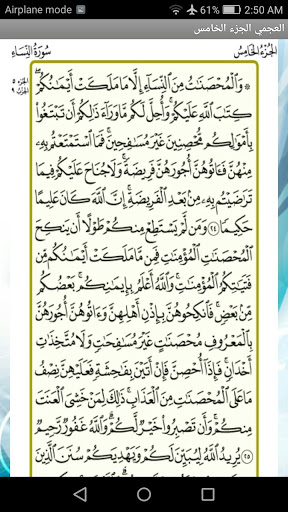 Airplane mode 2:50 AM
العجمي الجزء الخامس
الجزء الخامس سورة النساء
۞ وَٱلْمُحْصَنَٰتُ مِنَ ٱلنِّسَآءِ إِلَّا مَا مَلَكَتْ أَيْمَٰنُكُمْ
كِتَٰبَ ٱللَّهِ عَلَيْكُمْ وَأُحِلَّ لَكُم مَّا وَرَآءَ ذَٰلِكُمْ أَن تَبْتَغُوا۟
بِأَمْوَٰلِكُم مُّحْصِنِينَ غَيْرَ مُسَٰفِحِينَ فَمَا ٱسْتَمْتَعْتُم بِهِۦ
مِنْهُنَّ فَـَٔاتُوهُنَّ أُجُورَهُنَّ فَرِيضَةً وَلَا جُنَاحَ عَلَيْكُمْ فِيمَا
تَرَٰضَيْتُم بِهِۦ مِنۢ بَعْدِ ٱلْفَرِيضَةِ إِنَّ ٱللَّهَ كَانَ عَلِيمًا
حَكِيمًا ٢٤ وَمَن لَّمْ يَسْتَطِعْ مِنكُمْ طَوْلًا أَن يَنكِحَ
ٱلْمُحْصَنَٰتِ ٱلْمُؤْمِنَٰتِ فَمِن مَّا مَلَكَتْ أَيْمَٰنُكُم مِّن
فَتَيَٰتِكُمُ ٱلْمُؤْمِنَٰتِ وَٱللَّهُ أَعْلَمُ بِإِيمَٰنِكُم بَعْضُكُم
مِّنۢ بَعْضٍ فَٱنكِحُوهُنَّ بِإِذْنِ أَهْلِهِنَّ وَءَاتُوهُنَّ أُجُورَهُنَّ
بِٱلْمَعْرُوفِ مُحْصَنَٰتٍ غَيْرَ مُسَٰفِحَٰتٍ وَلَا مُتَّخِذَٰتِ
أَخْدَانٍ فَإِذَآ أُحْصِنَّ فَإِنْ أَتَيْنَ بِفَٰحِشَةٍ فَعَلَيْهِنَّ نِصْفُ
مَا عَلَى ٱلْمُحْصَنَٰتِ مِنَ ٱلْعَذَابِ ذَٰلِكَ لِمَنْ خَشِىَ ٱلْعَنَتَ
مِنكُمْ وَأَن تَصْبِرُوا۟ خَيْرٌ لَّكُمْ وَٱللَّهُ غَفُورٌ رَّحِيمٌ
٢٥ يُرِيدُ ٱللَّهُ لِيُبَيِّنَ لَكُمْ وَيَهْدِيَكُمْ سُنَنَ ٱلَّذِينَ